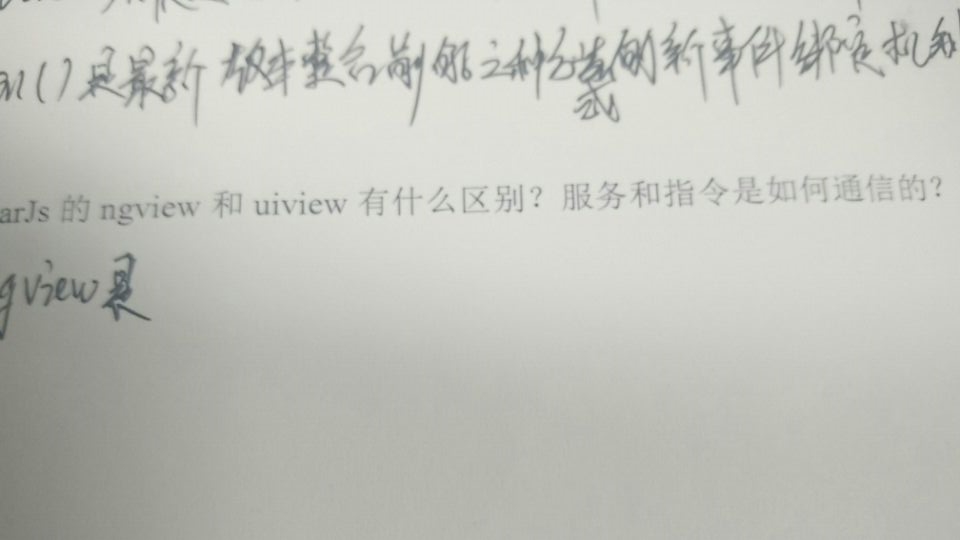 () 是最新版本整合前面三种方式的新事件绑定机制
arJs 的 ngview 和 uiview 有什么区别？服务和指令是如何通信的？
gview是